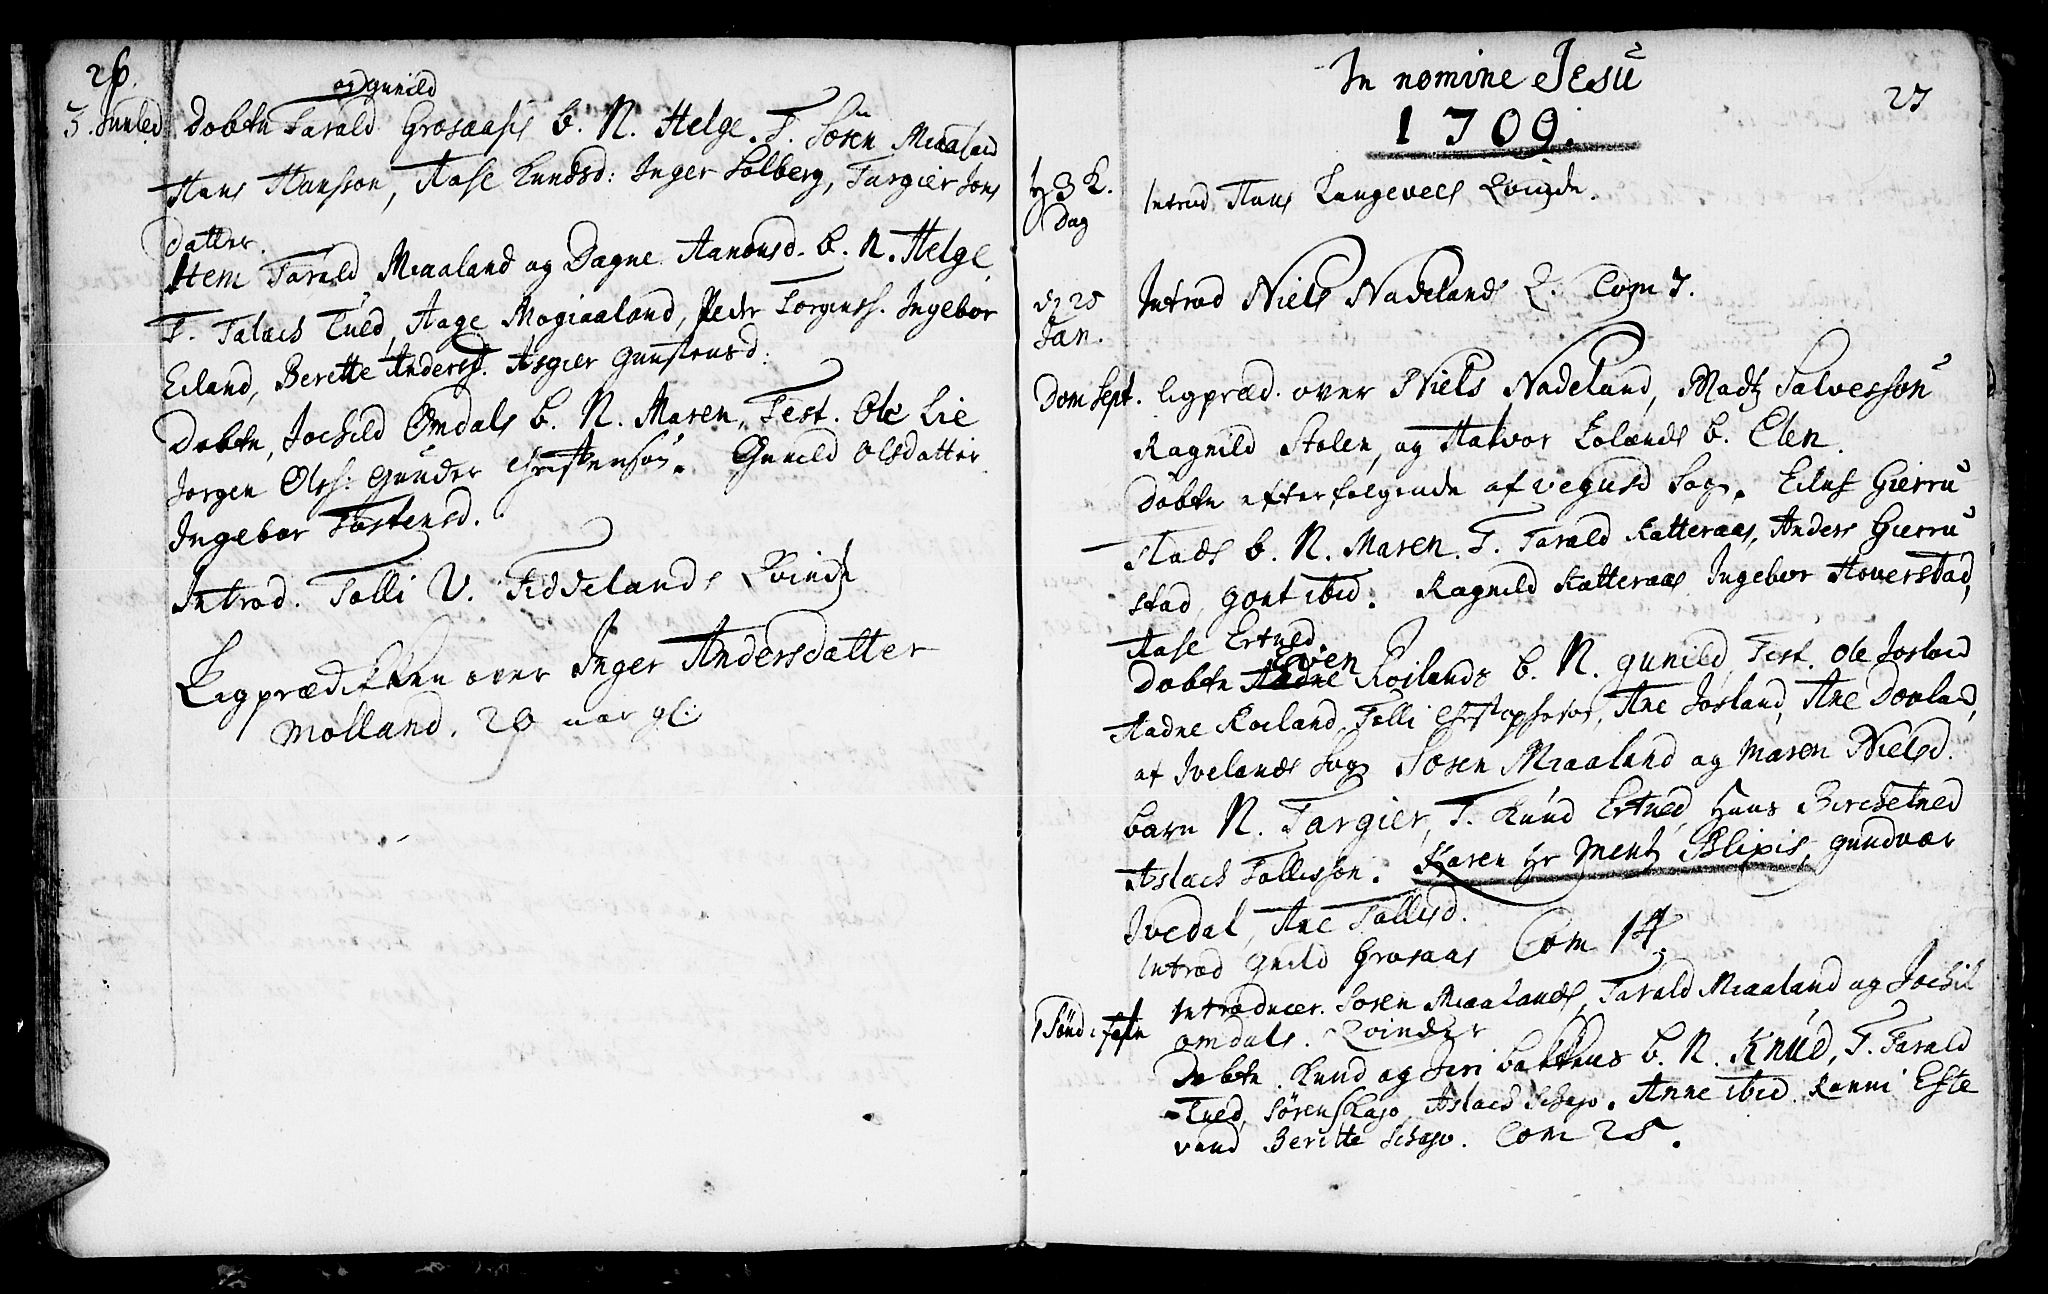 26.
og Gunild
3. Juuled. Døbtn Tarald Grosaasis b. N. Helge. T. Søren Miaaland
Hans Hansson, Aase Knudsd: Inger Solberg, Targier Jons
datter.
Item Tarald Miaaland og Dagne Aanonsd. b. N. Helge
T. Talach Tued, Aage Mogiaaland, Peder Torgenss. Ingebor
Eiland, Berette Andersd. Asgier Gunstensd:
Døbtn, Jochild Omdals b. N. Maren, Test. Ole Lie
Jorgen Olss: Gunder Christensøn. Gunild Olsdatter
Ingebor Tostensd.
Introd. Tolli V. Fidielands Kvinde
Ligprædikken over Inger Andersdatter
Molland. 20 aar gl:
In nomine Jesu
27
1709.
H 3 K.
Dag
Introd Hans Langevels Kvinde.
d. 25
Jan.
Introd Niels Nadelands K. Com 7.
Dom Sept. Ligpræd. over Niels Nadeland, Madtz Salvesson
Ragnild Stolen, og Halvor Lolands b. Elen.
Døbtn efterfølgende af Vegusd Sogn. Eiluf Gierru
stads b. N. Maren. T. Tarald Katteraas, Anders Gierru
stad, Gont ibid. Ragnild Katteraas Ingebor Hoverstad,
Aase Ertued
Even
Døbtn Aadne Roilands b. N. Gunild, Test. Ole Josland
Aadne Roiland, Tolli Christophersøn, Ane Josland, Ane Dovland,
af Ivelands Sogn Søren Miaaland og Maren Nielsd.
barn N. Targier, T. Knud Ertued, Hans Birchetued
Aslach Tollisson. Karen Hr Mentz Blixis, Gundvor
Ivedal, Ane Tollisd.
Introd Gunild Grosaas Com 14.
1 Sønd. i fastn Introducer. Søren Miaalands, Tarald Miaaland og Jochil
omdals. Kvinder
Døbtn. Knud og Siri Bakkens b. N. Knud, T. Tarald
Tued, Søren Skaio, Aslach Schajo. Anne ibid. Ranni Efte
vand Beritte Schajo. Com 28.